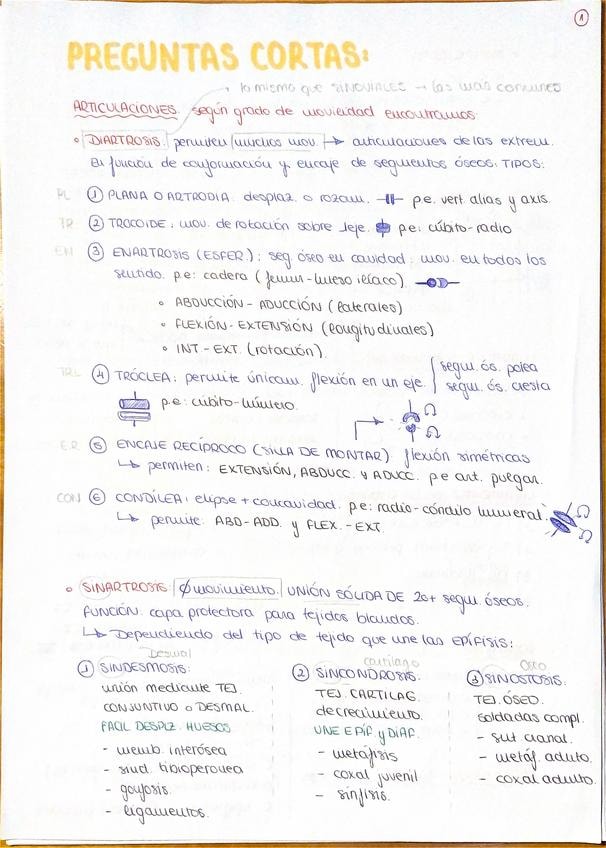 1
PREGUNTAS CORTAS:
lo mismo que SINOVIALES → las más comunes
ARTICULACIONES. según grado de movilidad encontramos:
• DIARTROSIS. permiten muchos mov. → articulaciones de las extrem.
En función de conformación y encaje de segmentos óseos. TIPOS:
PL ① PLANA O ARTRODIA. desplaz. o rozam. p.e. vert. alias y axis.
TR ② TROCOIDE: mov. de rotación sobre 1 eje. p.e: cúbito-radio
EN ③ ENARTROSIS (ESFER): seg. óseo en cavidad: mov. en todos los
sentido. p.e: cadera (femur-hueso ilíaco).
• ABDUCCIÓN - ADUCCIÓN (laterales)
• FLEXIÓN - EXTENSIÓN (longitudinales)
• INT - EXT. (rotación).
TRL ④ TRÓCLEA: permite únicam. flexión en un eje. segm. ós. polea
segm. ós. cresta
p.e: cúbito-húmero.
E.R ⑤ ENCAJE RECÍPROCO (SILLA DE MONTAR) flexión simétricas
↳ permiten: EXTENSIÓN, ABDUCC. y ADUCC. p.e art. pulgar.
CON ⑥ CONDÍLEA: elipse + concavidad. p.e: radio-cóndulo humeral.
↳ permite: ABD-ADD. y FLEX. - EXT.
• SINARTROSIS: Ø movimiento. UNIÓN SÓLIDA DE 2 o + segm. óseos.
FUNCIÓN: capa protectora para tejidos blandos.
↳ Dependiendo del tipo de tejido que une las EPÍFISIS:
Desmal
① SINDESMOSIS:
unión mediante TEJ.
CONJUNTIVO o DESMAL.
FACIL DESPLZ. HUESOS
- memb. interósea
- sind. tibioperonea
- gonfosis
- ligamentos.
cartílago
② SINCONDROSIS:
TEJ. CARTILAG.
de crecimiento.
UNE EPÍF. y DIAF.
- metáfisis
- coxal juvenil
- sínfisis.
Óseo
③ SINOSTOSIS:
TEJ. ÓSEO.
soldadas compl.
- sut cranal.
- metáf. adulto.
- coxal adulto.